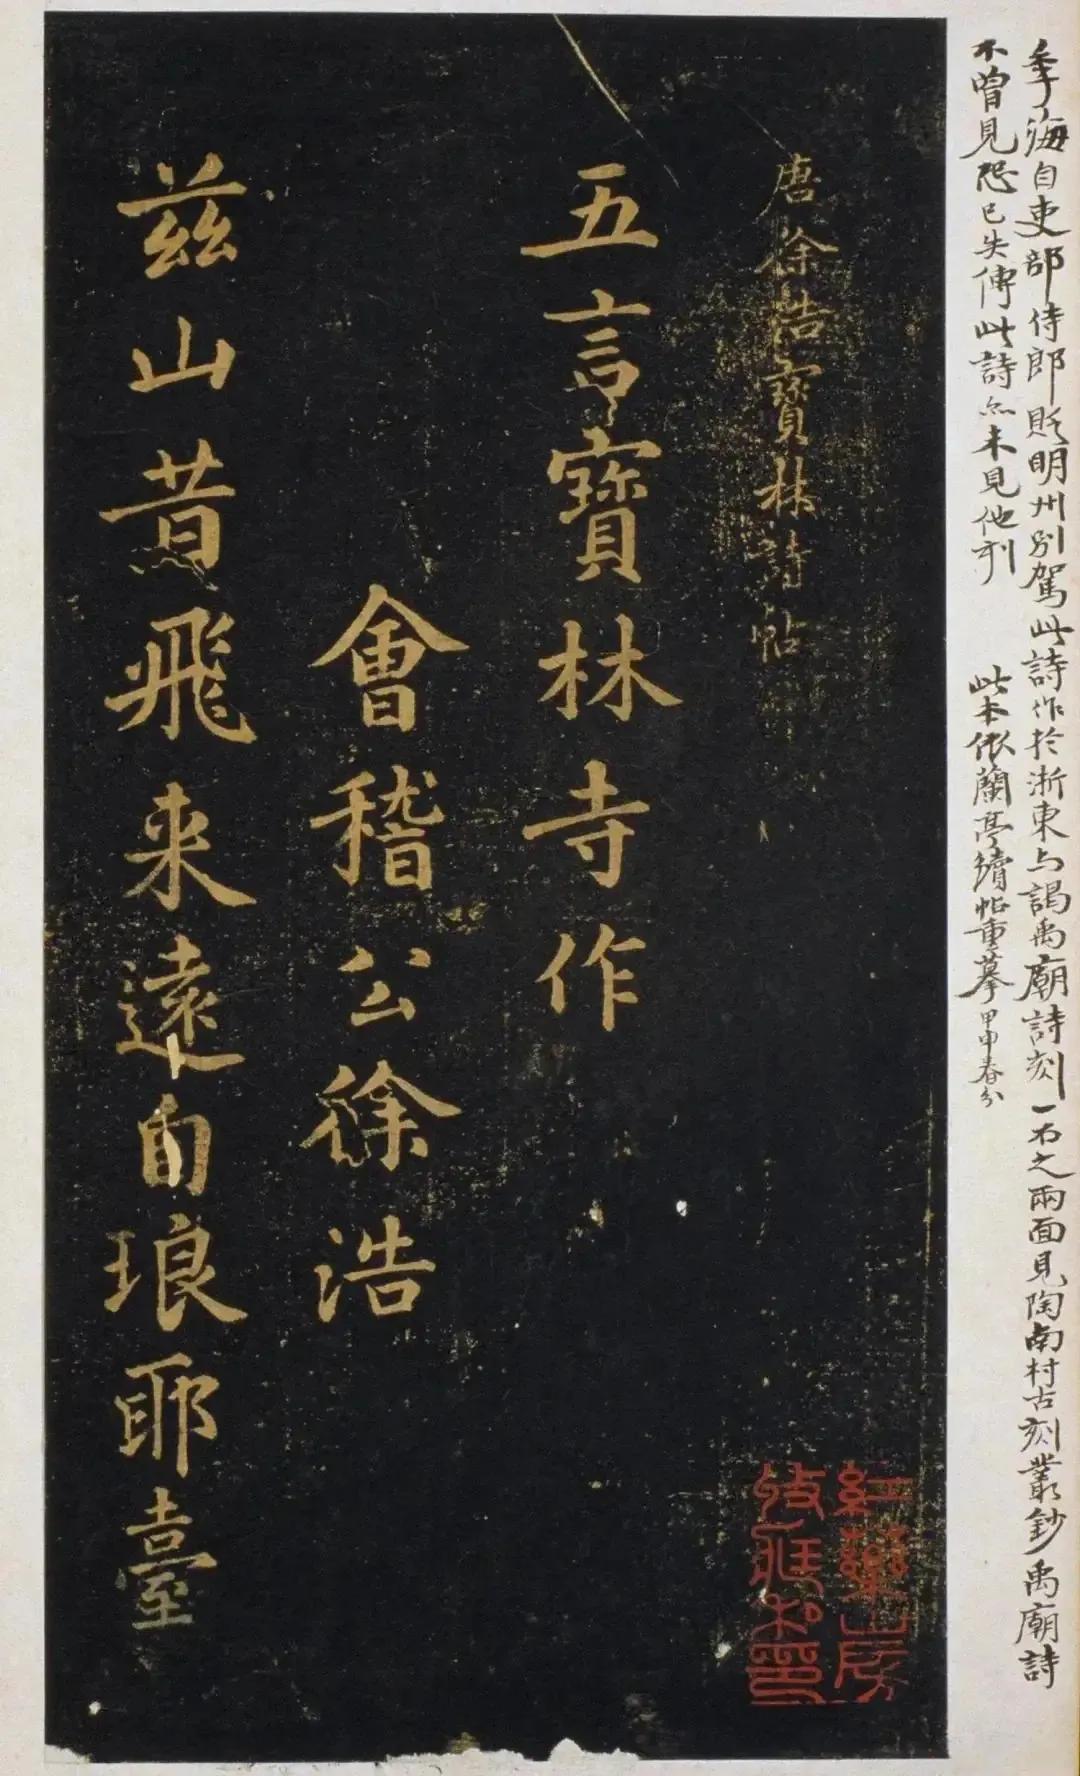 季海自吏部侍郎貶明州別駕此詩作於浙東与謁禹廟詩刻一石之兩面見陶南村古刻叢鈔禹廟詩
不曾見恐已失傳此詩亦未見他刊
此本依蘭亭續帖重摹甲申春分
唐徐浩寶林詩帖
五言寶林寺作
會稽公徐浩
茲山昔飛来遠自琅耶臺
紅藥山房
收藏私印